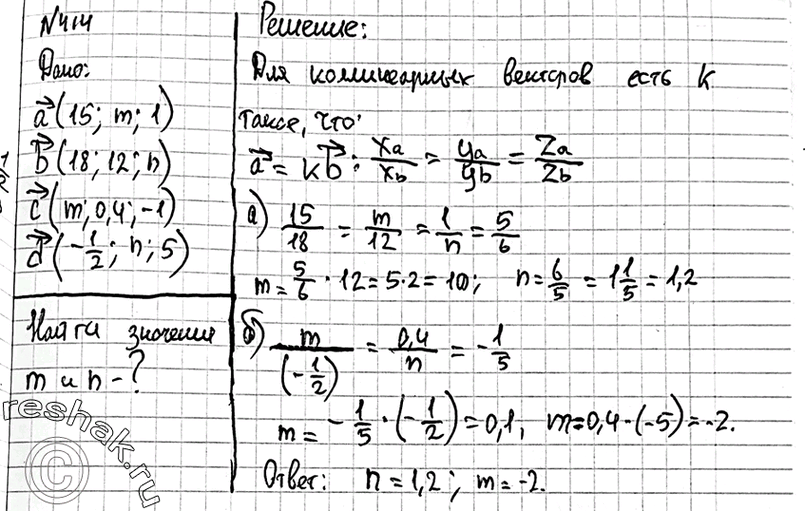 N414
Дано:
a⃗ (15; m; 1)
b⃗ (18; 12; n)
c⃗ (m; 0,4; -1)
d⃗ (-1/2; n; 5)
Найти значения
m и n - ?
Решение:
Для коллинеарных векторов есть k
такое, что:
a⃗ = kb⃗: xa/xb = ya/yb = za/zb
а) 15/18 = m/12 = 1/n = 5/6
m = 5/6 · 12 = 5·2 = 10; n = 6/5 = 1 1/5 = 1,2
б) m/(-1/2) = 0,4/n = -1/5
m = -1/5 · (-1/2) = 0,1, m = 0,4·(-5) = -2.
Ответ: n = 1,2; m = -2.
reshak.ru
©